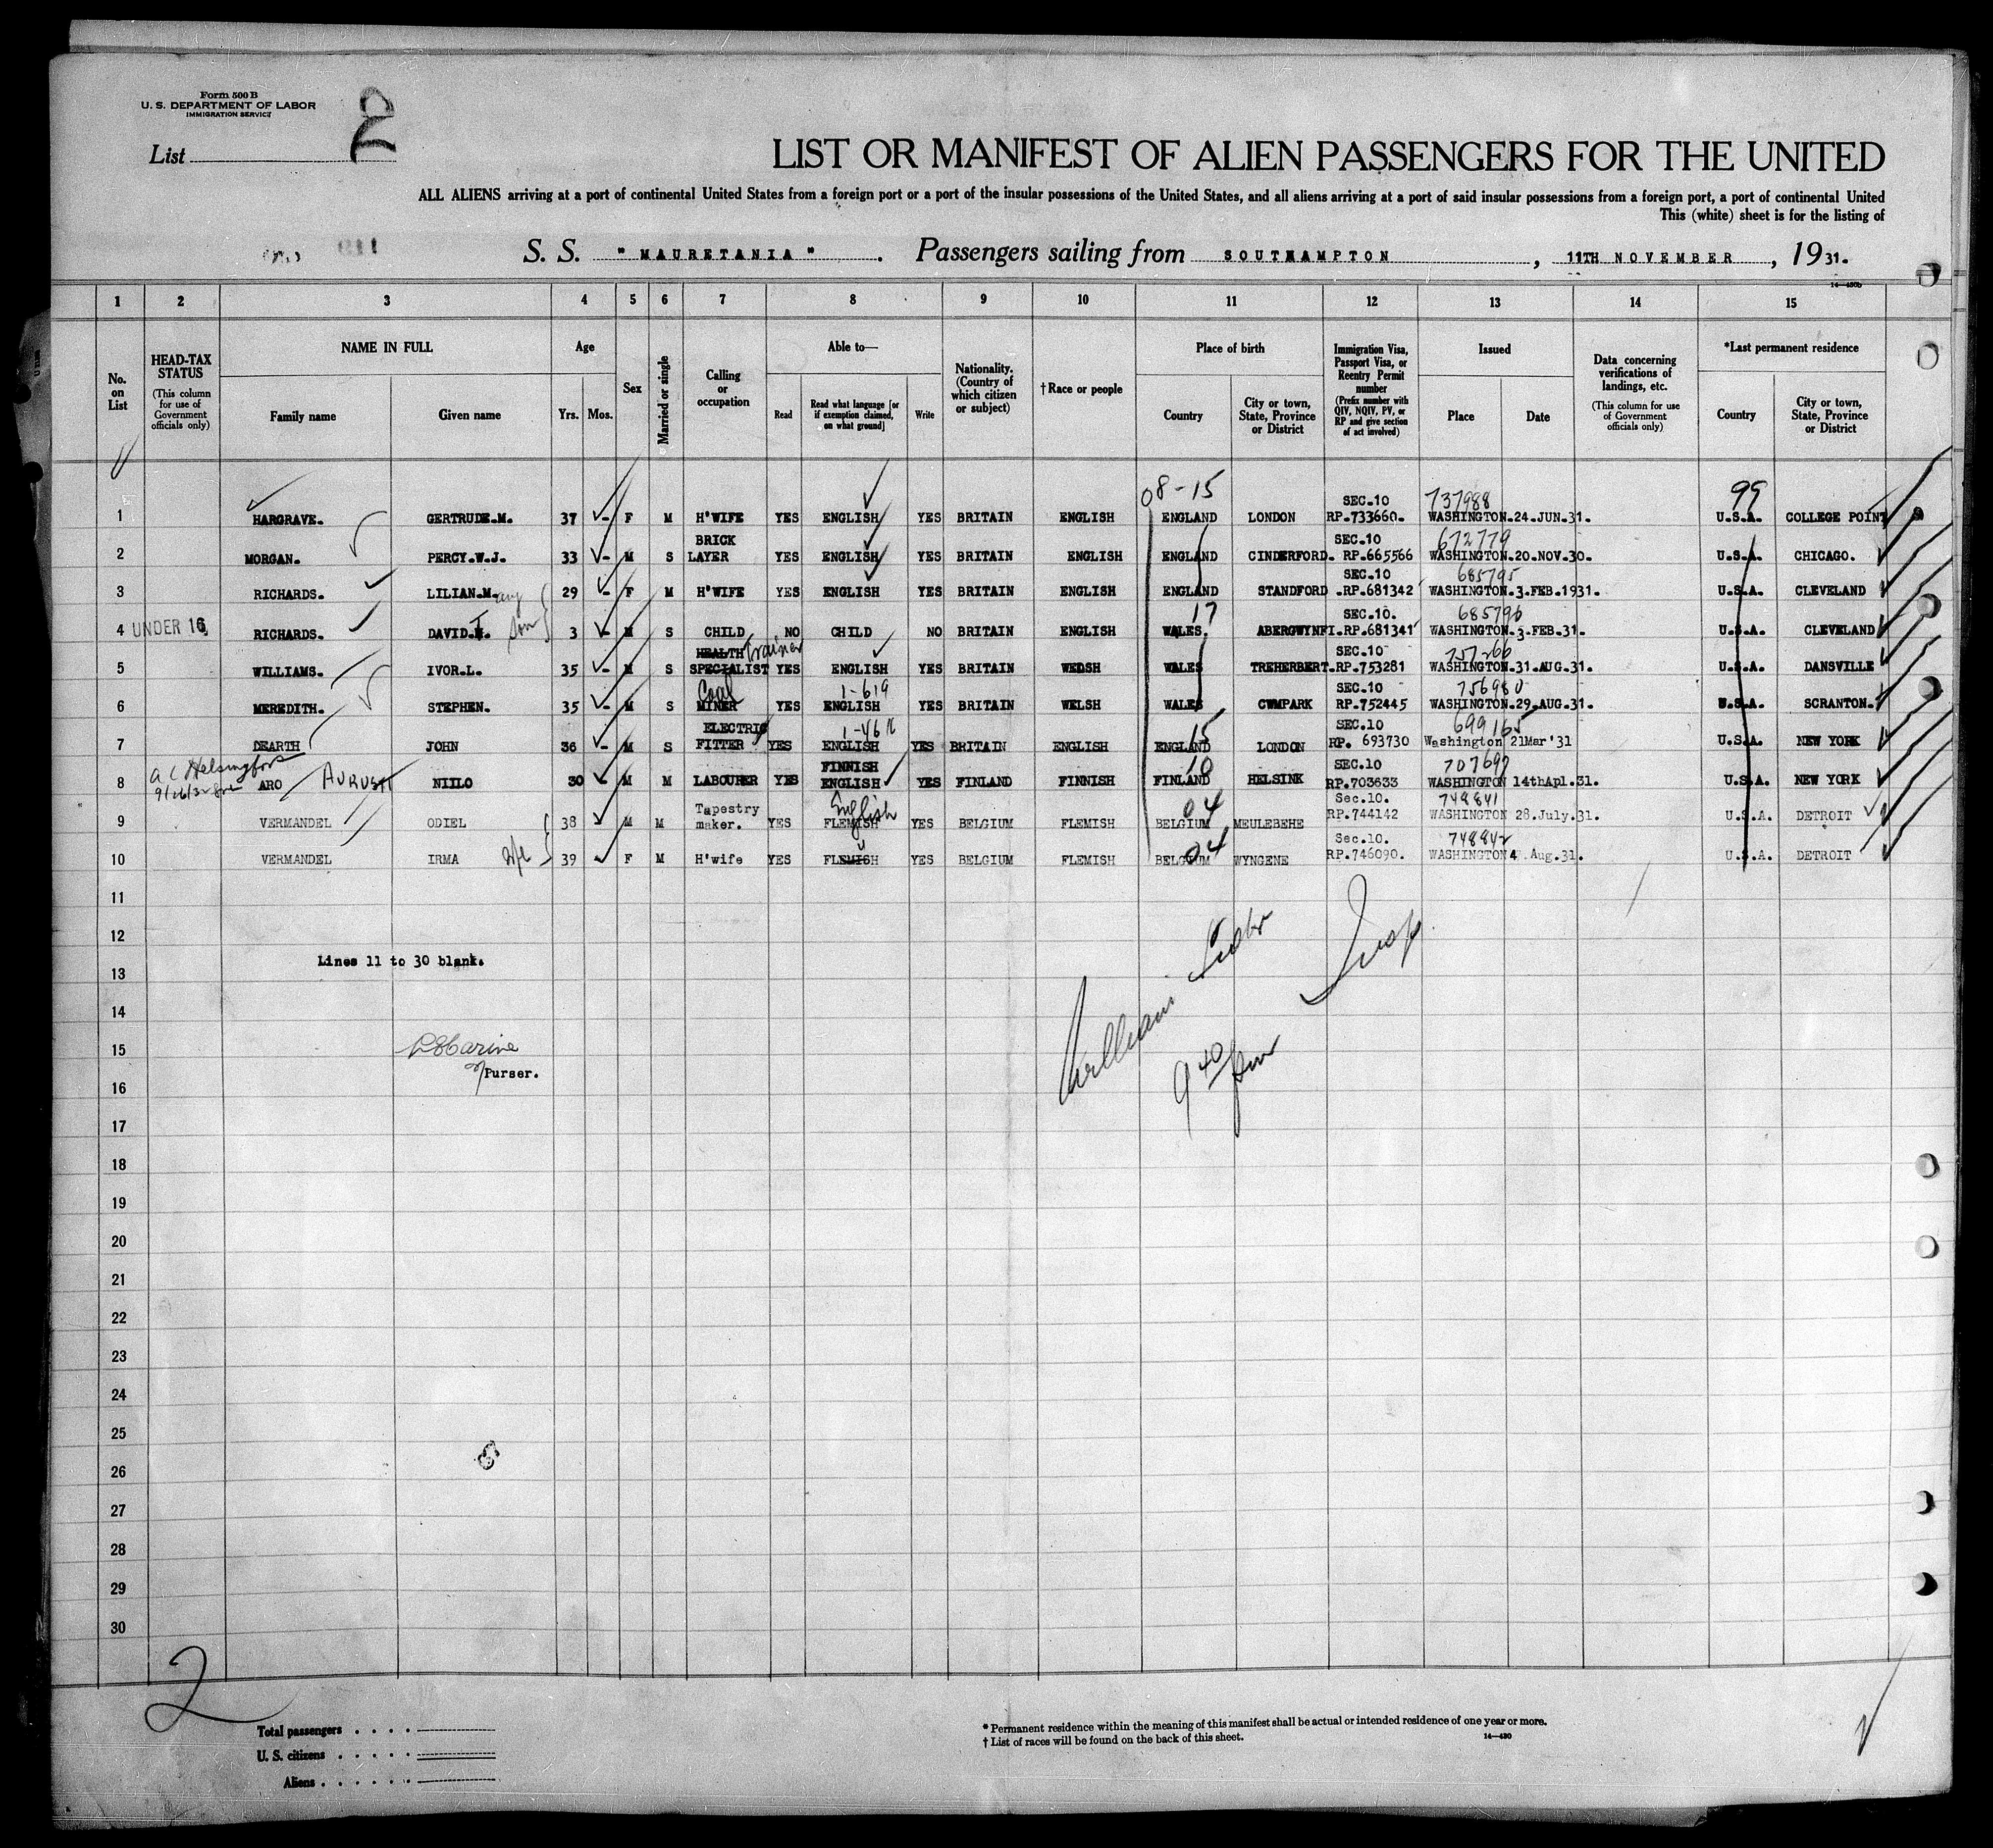 Form 500 B
U. S. DEPARTMENT OF LABOR
IMMIGRATION SERVICE
List 2
LIST OR MANIFEST OF ALIEN PASSENGERS FOR THE UNITED
ALL ALIENS arriving at a port of continental United States from a foreign port or a port of the insular possessions of the United States, and all aliens arriving at a port of said insular possessions from a foreign port, a port of continental United
This (white) sheet is for the listing of
S. S. "MAURETANIA". Passengers sailing from SOUTHAMPTON, 11TH NOVEMBER, 1931.
14—430b
1 2 3 4 5 6 7 8 9 10 11 12 13 14 15
No. on List
HEAD-TAX STATUS (This column for use of Government officials only)
NAME IN FULL Family name Given name
Age Yrs. Mos.
Sex
Married or single
Calling or occupation
Able to— Read Read what language [or if exemption claimed, on what ground] Write
Nationality. (Country of which citizen or subject)
†Race or people
Place of birth Country City or town, State, Province or District
Immigration Visa, Passport Visa, or Reentry Permit number (Prefix number with QIV, NQIV, PV, or RP and give section of act involved)
Issued Place Date
Data concerning verifications of landings, etc. (This column for use of Government officials only)
*Last permanent residence Country City or town, State, Province or District
08-15 SEC.10 737988 99
1 HARGRAVE. GERTRUDE.M. 37 - F M H'WIFE YES ENGLISH YES BRITAIN ENGLISH ENGLAND LONDON RP.733660. WASHINGTON.24.JUN.31. U.S.A. COLLEGE POINT
BRICK SEC.10 672779
2 MORGAN. PERCY.W.J. 33 - M S LAYER YES ENGLISH YES BRITAIN ENGLISH ENGLAND CINDERFORD. RP.665566 WASHINGTON.20.NOV.30. U.S.A. CHICAGO.
SEC.10 685795
3 RICHARDS. LILIAN.Mary 29 - F M H'WIFE YES ENGLISH YES BRITAIN ENGLISH ENGLAND STANDFORD .RP.681342 WASHINGTON.3.FEB.1931. U.S.A. CLEVELAND
17 SEC.10. 685796
4 UNDER 16 RICHARDS. DAVID.T. son 3 - M S CHILD NO CHILD NO BRITAIN ENGLISH WALES. ABERGWYNFI.RP.681341 WASHINGTON.3.FEB.31. U.S.A. CLEVELAND
HEALTH Trainer SEC.10 757266
5 WILLIAMS. IVOR.L. 35 - M S SPECIALIST YES ENGLISH YES BRITAIN WELSH WALES TREHERBERT.RP.753281 WASHINGTON.31.AUG.31. U.S.A. DANSVILLE
Coal 1-619 SEC.10 756980
6 MEREDITH. STEPHEN. 35 - M S MINER YES ENGLISH YES BRITAIN WELSH WALES CWMPARK RP.752445 WASHINGTON.29.AUG.31. U.S.A. SCRANTON.
ELECTRIC 15 SEC.10 699165
7 DEARTH JOHN 36 - M S FITTER YES ENGLISH YES BRITAIN ENGLISH ENGLAND LONDON RP. 693730 Washington 21Mar'31 U.S.A. NEW YORK
a c Helsingfors FINNISH 10 SEC.10 707697
8 ARO AUGUST NIILO 30 M M LABOURER YES ENGLISH YES FINLAND FINNISH FINLAND HELSINK RP.703633 WASHINGTON 14thApl.31. U.S.A. NEW YORK
Tapestry English 04 Sec.10. 748841
9 VERMANDEL ODIEL 38 M M maker. YES FLEMISH YES BELGIUM FLEMISH BELGIUM MEULEBEHE RP.744142 WASHINGTON 28.July.31. U.S.A. DETROIT
04 Sec.10. 748842
10 VERMANDEL IRMA wife 39 F M H'wife YES FLEMISH YES BELGIUM FLEMISH BELGIUM WYNGENE RP.746090. WASHINGTON 4.Aug.31. U.S.A. DETROIT
11
12
Lines 11 to 30 blank.
13
14
15
Purser.
16
William Insp.
9 40 pm
17
18
19
20
21
22
23
24
25
26
27
28
29
30
2
Total passengers . . . .
U. S. citizens . . . . .
Aliens . . . . . .
* Permanent residence within the meaning of this manifest shall be actual or intended residence of one year or more.
† List of races will be found on the back of this sheet.
14—430